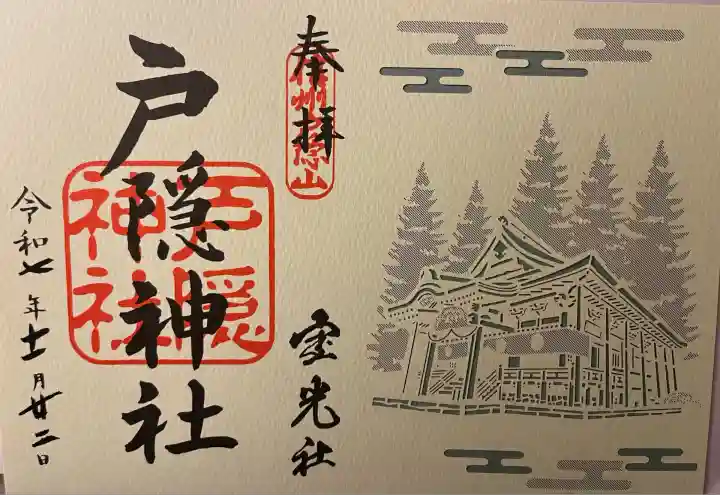 奉拝
信州戸隠山
宝光社
戸隠神社
戸隠神社
令和七年十一月廿二日